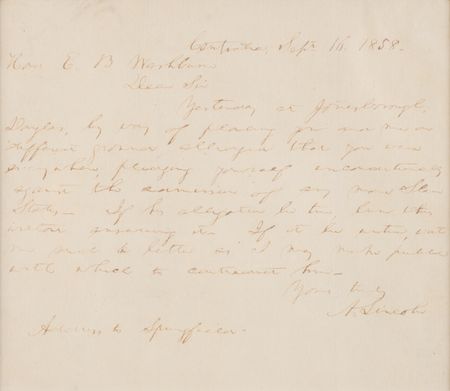 Centralia, Sept. 16. 1858.
Hon. E. B. Washburne
Dear Sir
Yesterday at Jonesborough,
Douglas, by way of placing you and me on
different ground alleged that you were
everywhere, pledging yourself unconditionally
against the admission of any more Slave
States. If his allegation be true,
it. If it be untrue, write
me such a letter as I may make public
with which to contradict him.
Yours truly
A. Lincoln
Address to Springfield.